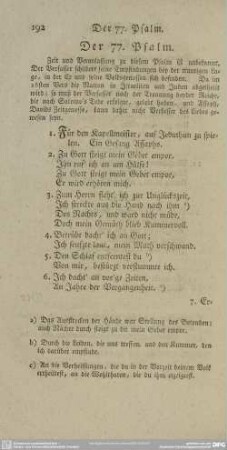 192 Der 77. Psalm.
Der 77. Psalm.
Zeit und Veranlassung zu diesem Psalm ist unbekannt.
Der Verfasser schildert seine Empfindungen bey der traurigen Lage, in der Er und seine Volksgenossen sich befanden. Da im
16ten Vers die Nation in Jerusalem und Juden abgetheilt
wird; so muß der Verfasser nach der Trennung beyder Reiche,
die nach Salomo's Tode erfolgte, gelebt haben.
Davids Zeitgenosse, kann daher nicht Verfasser des Liedes
gewesen seyn.
1. Für den Kapellmeister, auf Jeduthun zu spielen. Ein Gesang Assaphs.
2. Zu Gott steigt mein Gebet empor,
Ihn ruf ich an um Hülfe!
Zu Gott steigt mein Gebet empor,
Er wird erhören mich.
3. Zum Herren fleht' ich zur Unglückszeit,
Ich streckte aus die Hand nach ihm a)
Des Nachts, und ward nicht müde,
Doch mein Gemüth blieb kummervoll.
4. Betrübt dacht' ich an Gott;
Ich seufzte laut, mein Muth verschwand.
5. Den Schlaf entferntest du b)
Von mir, bestürzt verstummte ich.
6. Ich dacht' an vor'ge Zeiten,
An Jahre der Vergangenheit. c)
7. Er-
a) Das Ausstrecken der Hände war Stellung des Betenden;
auch Nachts durch steigt zu dir mein Gebet empor.
b) Durch die Leiden, die uns pressen, und den Kummer, den
ich darüber empfinde.
c) An die Verheißungen, die du in der Vorzeit deinem Volk
ertheiltest, an die Wohlthaten, die du ihm erzeigtest.